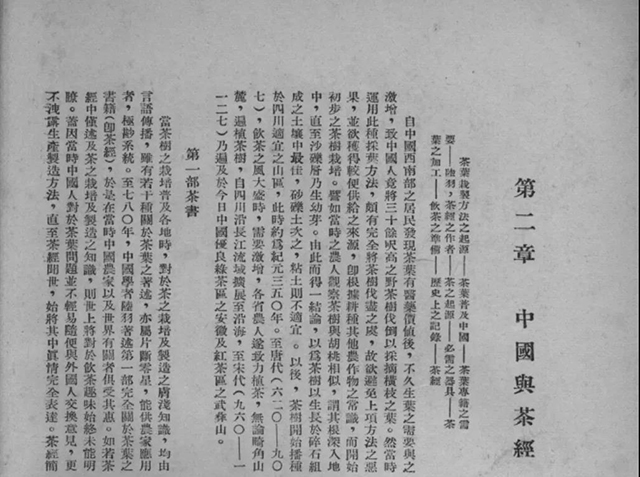 第二章　中國與茶經
茶葉栽製方法之起源——茶葉普及中國——茶葉專籍之需
要——陸羽，茶經之作者——茶之起源——必需之器具——茶
葉之加工——飲茶之準備——歷史上之記錄——茶經
自中國西南部之居民發現茶葉有醫藥價值後，不久生葉之需要與之
激增，致中國人竟將三十餘呎高之野茶樹伐倒以採摘樹枝之葉。然當時
運用此種採葉方法，頗有完全將茶樹伐盡之處，故欲避免上項方法之惡
果，並欲獲得較便供給之來源，卽根據耕種其他農作物之常識，而開始
初步之茶樹栽培。譬如當時之農人觀察茶樹與胡桃相似，謂其根深入地
中，直至沙礫層乃生幼芽。由此而得一結論，以爲茶樹以生長於碎石組
成之土壤中最佳，砂礫土次之，粘土則不適宜。以後，茶樹開始播種
於四川適宜之山區，此時約爲紀元三五〇年。至唐代(六二〇—九〇
七)，飲茶之風大盛時，需要激增，各省農人遂致力植茶，無論畸角山
麓，遍植茶樹，自四川沿長江流域擴展至沿海，至宋代(九六〇—一
一二七)乃遍及於今日中國優良綠茶區之安徽及紅茶區之武彝山。
第一部茶書
當茶樹之栽培普及各地時，對於茶之栽培及製造之膚淺知識，均由
言語傳播，雖有若干種關於茶葉之著述，亦屬片斷零星，能供農家應用
者，極尠系統。至七八〇年，中國學者陸羽著述第一部完全關於茶葉之
書籍(卽茶經)，於是在當時中國農家以及世界有關者俱受其惠。如若茶
經中僅述及茶之栽培及製造之知識，則世上將對於飲茶趣味始終未能明
瞭。蓋因當時中國人對於茶葉問題並不輕易隨便與外國人交換意見，更
不洩露生產製造方法，直至茶經問世，始將其中眞情完全表達。茶經簡